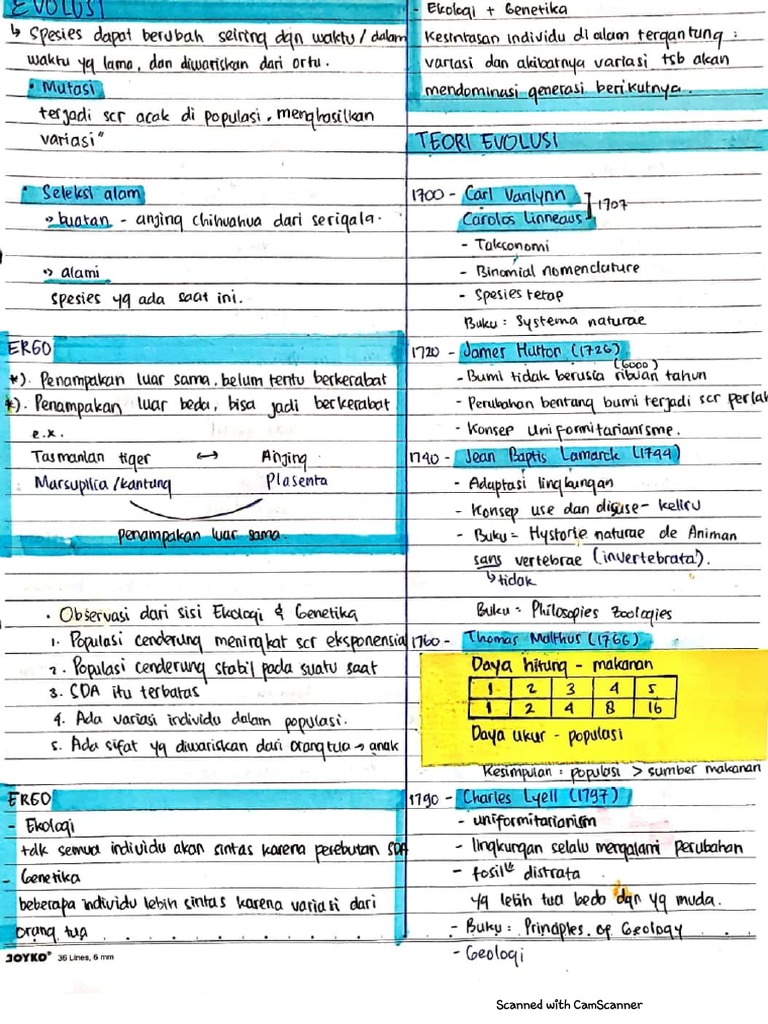 EVOLUSI
↳ Spesies dapat berubah seiring dgn waktu / dalam
waktu yg lama, dan diwariskan dari ortu.
• Mutasi
terjadi scr acak di populasi, menghasilkan
variasi"
• Seleksi alam
↬ buatan - anjing chihuahua dari serigala.
↬ alami
spesies yg ada saat ini.
ERGO
*). Penampakan luar sama, belum tentu berkerabat
*). Penampakan luar beda, bisa jadi berkerabat
e.x.
Tasmanian tiger ↔ Anjing
Marsupilia /kantung Plasenta
penampakan luar sama.
• Observasi dari sisi Ekologi & Genetika
1. Populasi cenderung meningkat scr eksponensial
2. Populasi cenderung stabil pada suatu saat
3. SDA itu terbatas
4. Ada variasi individu dalam populasi.
5. Ada sifat yg diwariskan dari orang tua → anak
ERGO
- Ekologi
tdk semua individu akan sintas karena perebutan SDA
- Genetika
beberapa individu lebih sintas karena variasi dari
orang tua
JOYKO® 36 Lines, 6 mm
- Ekologi + Genetika
Kesintasan individu di alam tergantung :
variasi dan akibatnya variasi tsb akan
mendominasi generasi berikutnya.
TEORI EVOLUSI
1700 - Carl Vanlynn
Carolos Linneaus ] 1707
- Taksonomi
- Binomial nomenclature
- Spesies tetap
Buku : Systema naturae
1720 - James Hutton (1726)
(6000)
- Bumi tidak berusia ribuan tahun
- Perubahan bentang bumi terjadi scr perlah
- Konsep Uniformitarianisme.
1740 - Jean Baptis Lamarck (1744)
- Adaptasi lingkungan
- Konsep use dan disuse - keliru
- Buku = Hystorie naturae de Animan
sans vertebrae (invertebrata).
↳ tidak
Buku = Philosopies Zoologies
1760 - Thomas Malthus (1766)
Daya hitung - makanan
1 2 3 4 5
1 2 4 8 16
Daya ukur - populasi
Kesimpulan : populasi > sumber makanan
1790 - Charles Lyell (1797)
- uniformitarianism
- lingkungan selalu mengalami perubahan
- fosil" distrata
yg lebih tua beda dgn yg muda.
- Buku : Principles of Geology
- Geologi
Scanned with CamScanner